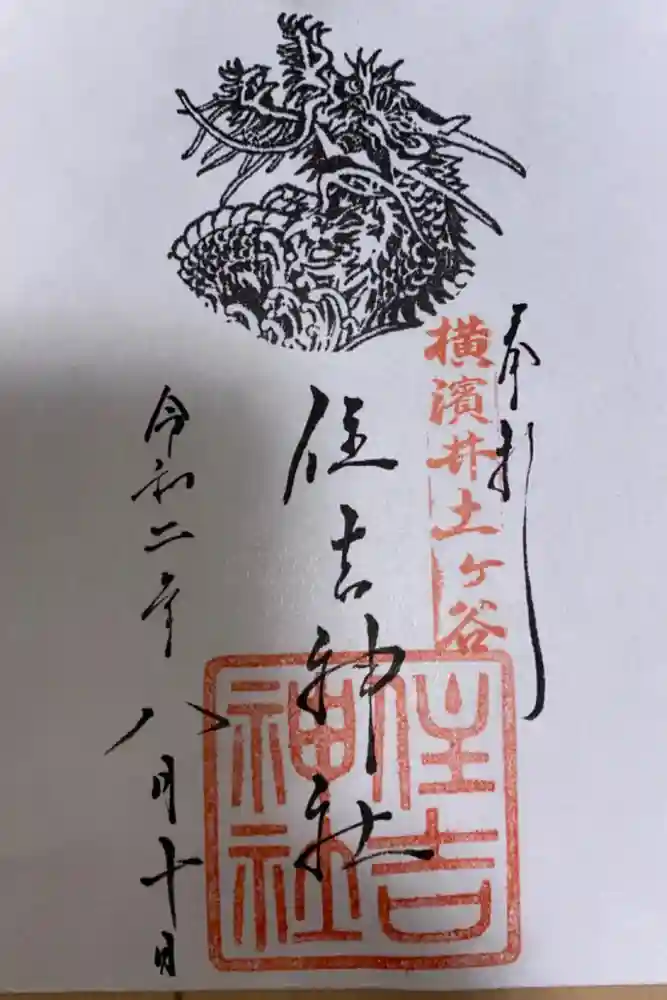 奉拝
横濱井土ヶ谷
住吉神社
住吉神社
令和二年八月十日